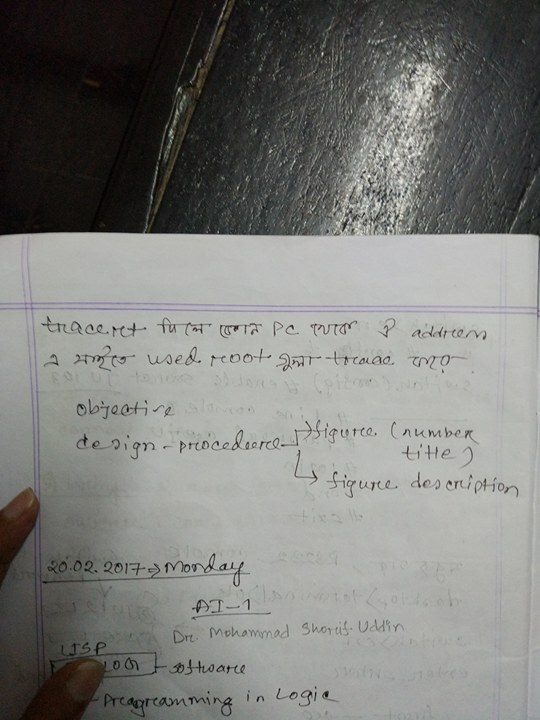 tracert দিলে কোন PC থেকে ঐ address
এ যাইতে used root গুলা trace করে.
objective
design-procedure
figure (number
title)
figure description
20.02.2017 → Monday
AI-1
Dr. Mohammad Shorif Uddin
LISP
software
Programming in Logic